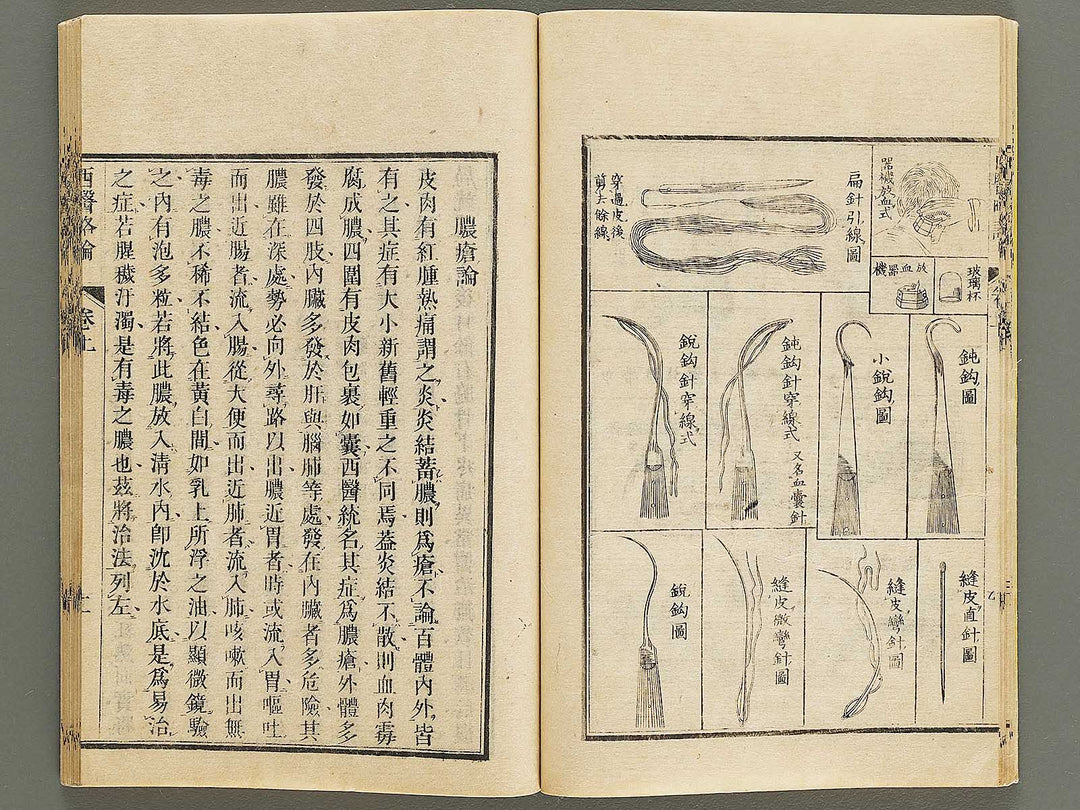 器機放血式
玻璃杯
放血器機
扁針引線圖
穿過皮後
剪去餘線
鈍鈎圖
小銳鈎圖
鈍鈎針穿線式 又名血囊針
銳鈎針穿線式
縫皮直針圖
縫皮彎針圖
縫皮微彎針圖
銳鈎圖
膿瘡論
皮肉有紅腫熱痛謂之炎炎結蓄膿則爲瘡不論百體內外皆
有之其症有大小新舊輕重之不同焉蓋炎結不散則血肉霉
腐成膿四圍有皮肉包裹如囊西醫統名其症爲膿瘡外體多
發於四肢內臟多發於肝與腦肺等處發在內臟者多危險其
膿雖在深處勢必向外尋路以出膿近胃者時或流入胃嘔吐
而出近腸者流入腸從大便而出近肺者流入肺咳嗽而出無
毒之膿不稀不結色在黃白間如乳上所浮之油以顯微鏡驗
之內有泡多粒若將此膿放入清水內卽沈於水底是爲易治
之症若腥穢汙濁是有毒之膿也茲將治法列左
西醫略論
卷上